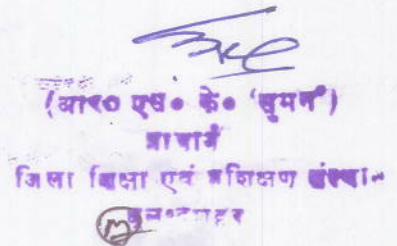 (आर० एस० के० 'सुमन')
प्राचार्य
जिला शिक्षा एवं प्रशिक्षण संस्थान
बुलन्दशहर